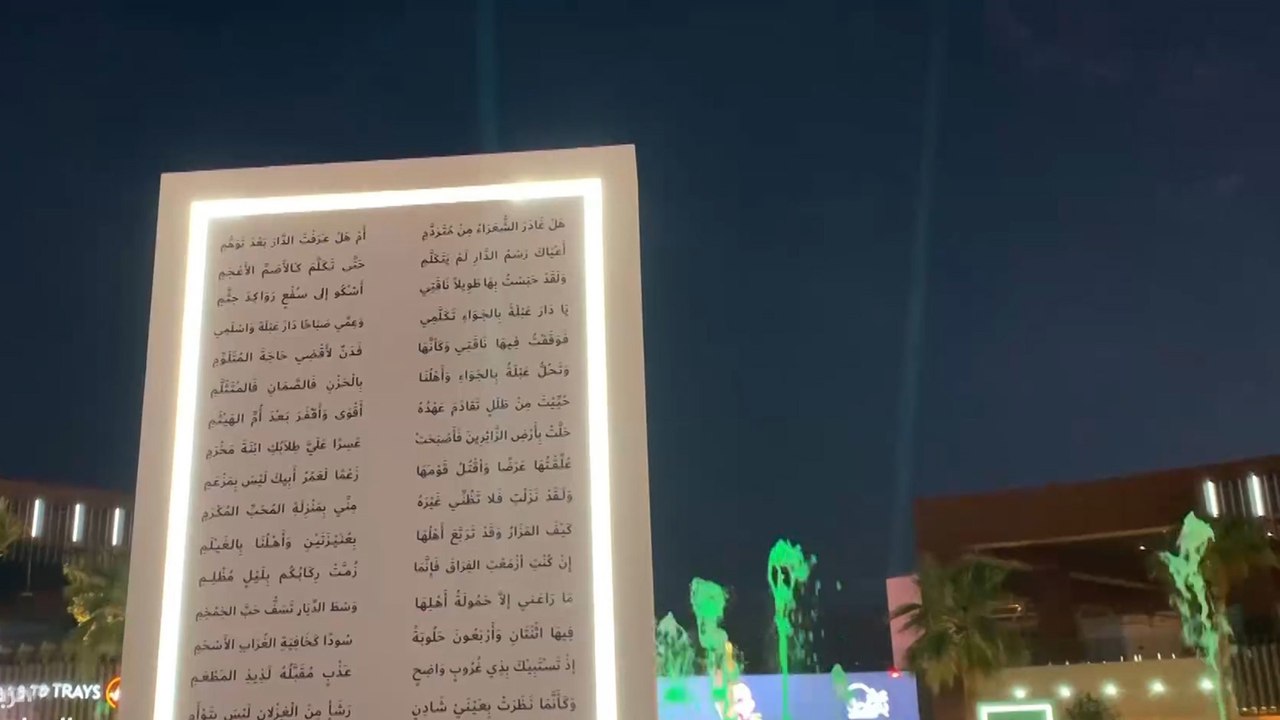 هَلْ غَادَرَ الشُّعَرَاءُ مِنْ مُتَرَدَّمِ أَمْ هَلْ عَرَفْتَ الدَّارَ بَعْدَ تَوَهُّمِ
أَعْيَاكَ رَسْمُ الدَّارِ لَمْ يَتَكَلَّمِ حَتَّى تَكَلَّمَ كَالأَصَمِّ الأَعْجَمِ
وَلَقَدْ حَبَسْتُ بِهَا طَوِيلاً نَاقَتِي أَشْكُو إلى سُفْعٍ رَوَاكِدَ جثَّمِ
يَا دَارَ عَبْلَةَ بِالجَوَاءِ تَكَلَّمِي وَعِمِّي صَبَاحًا دَارَ عَبْلَةَ وَاسْلَمِي
فَوَقَفْتُ فِيهَا نَاقَتِي وَكَأنَّهَا فَدَنٌ لأَقْضِي حَاجَةَ المُتَلَوِّمِ
وَتَحُلُّ عَبْلَةُ بِالجَوَاءِ وَأَهْلُنَا بِالْحَزْنِ فَالصَّمَانِ فَالمُتَثَلَّمِ
حُيِّيْتَ مِنْ طَلَلٍ تَقَادَمَ عَهْدُهُ أَقْوَى وَأَقْفَرَ بَعْدَ أُمِّ الهَيْثَمِ
حَلَّتْ بِأَرْضِ الزَّائِرِينَ فَأَصْبَحَتْ عَسِرًا عَلَيَّ طِلاَبُكِ ابْنَةَ مَخْرَمِ
عُلِّقْتُهَا عَرَضًا وَأَقْتُلُ قَوْمَهَا زَعْمًا لَعَمْرُ أَبِيكَ لَيْسَ بِمَزْعَمِ
وَلَقَدْ نَزَلْتِ فَلا تَظُنِّي غَيْرَهُ مِنِّي بِمَنْزِلَةِ المُحَبِّ المُكْرَمِ
كَيْفَ المَزَارُ وَقَدْ تَرَبَّعَ أَهْلُهَا بِعُنَيْزَتَيْنِ وَأَهْلُنَا بِالغَيْلَمِ
إِنْ كُنْتِ أَزْمَعْتِ الفِرَاقَ فَإِنَّمَا زُمَّتْ رِكَابُكُم بِلَيْلٍ مُظْلِمِ
مَا رَاعَنِي إلاَّ حَمُولَةُ أَهْلِهَا وَسْطَ الدِّيَارِ تَسَفُّ حَبَّ الخمْخِمِ
فِيهَا اثْنَتَانِ وَأَرْبَعُونَ حَلُوبَةً سُودًا كَخَافِيَةِ الغُرَابِ الأَسْحَمِ
إذْ تَسْتَبِيكَ بِذِي غُرُوبٍ وَاضِحٍ عَذْبٍ مُقَبَّلُهُ لَذِيذِ المَطْعَمِ
وَكَأَنَّمَا نَظَرَتْ بِعَيْنَيْ شَادِنٍ رَشَأٍ مِنَ الْغِزْلانِ لَيْسَ بِتَوْأَمِ
TO TRAYS